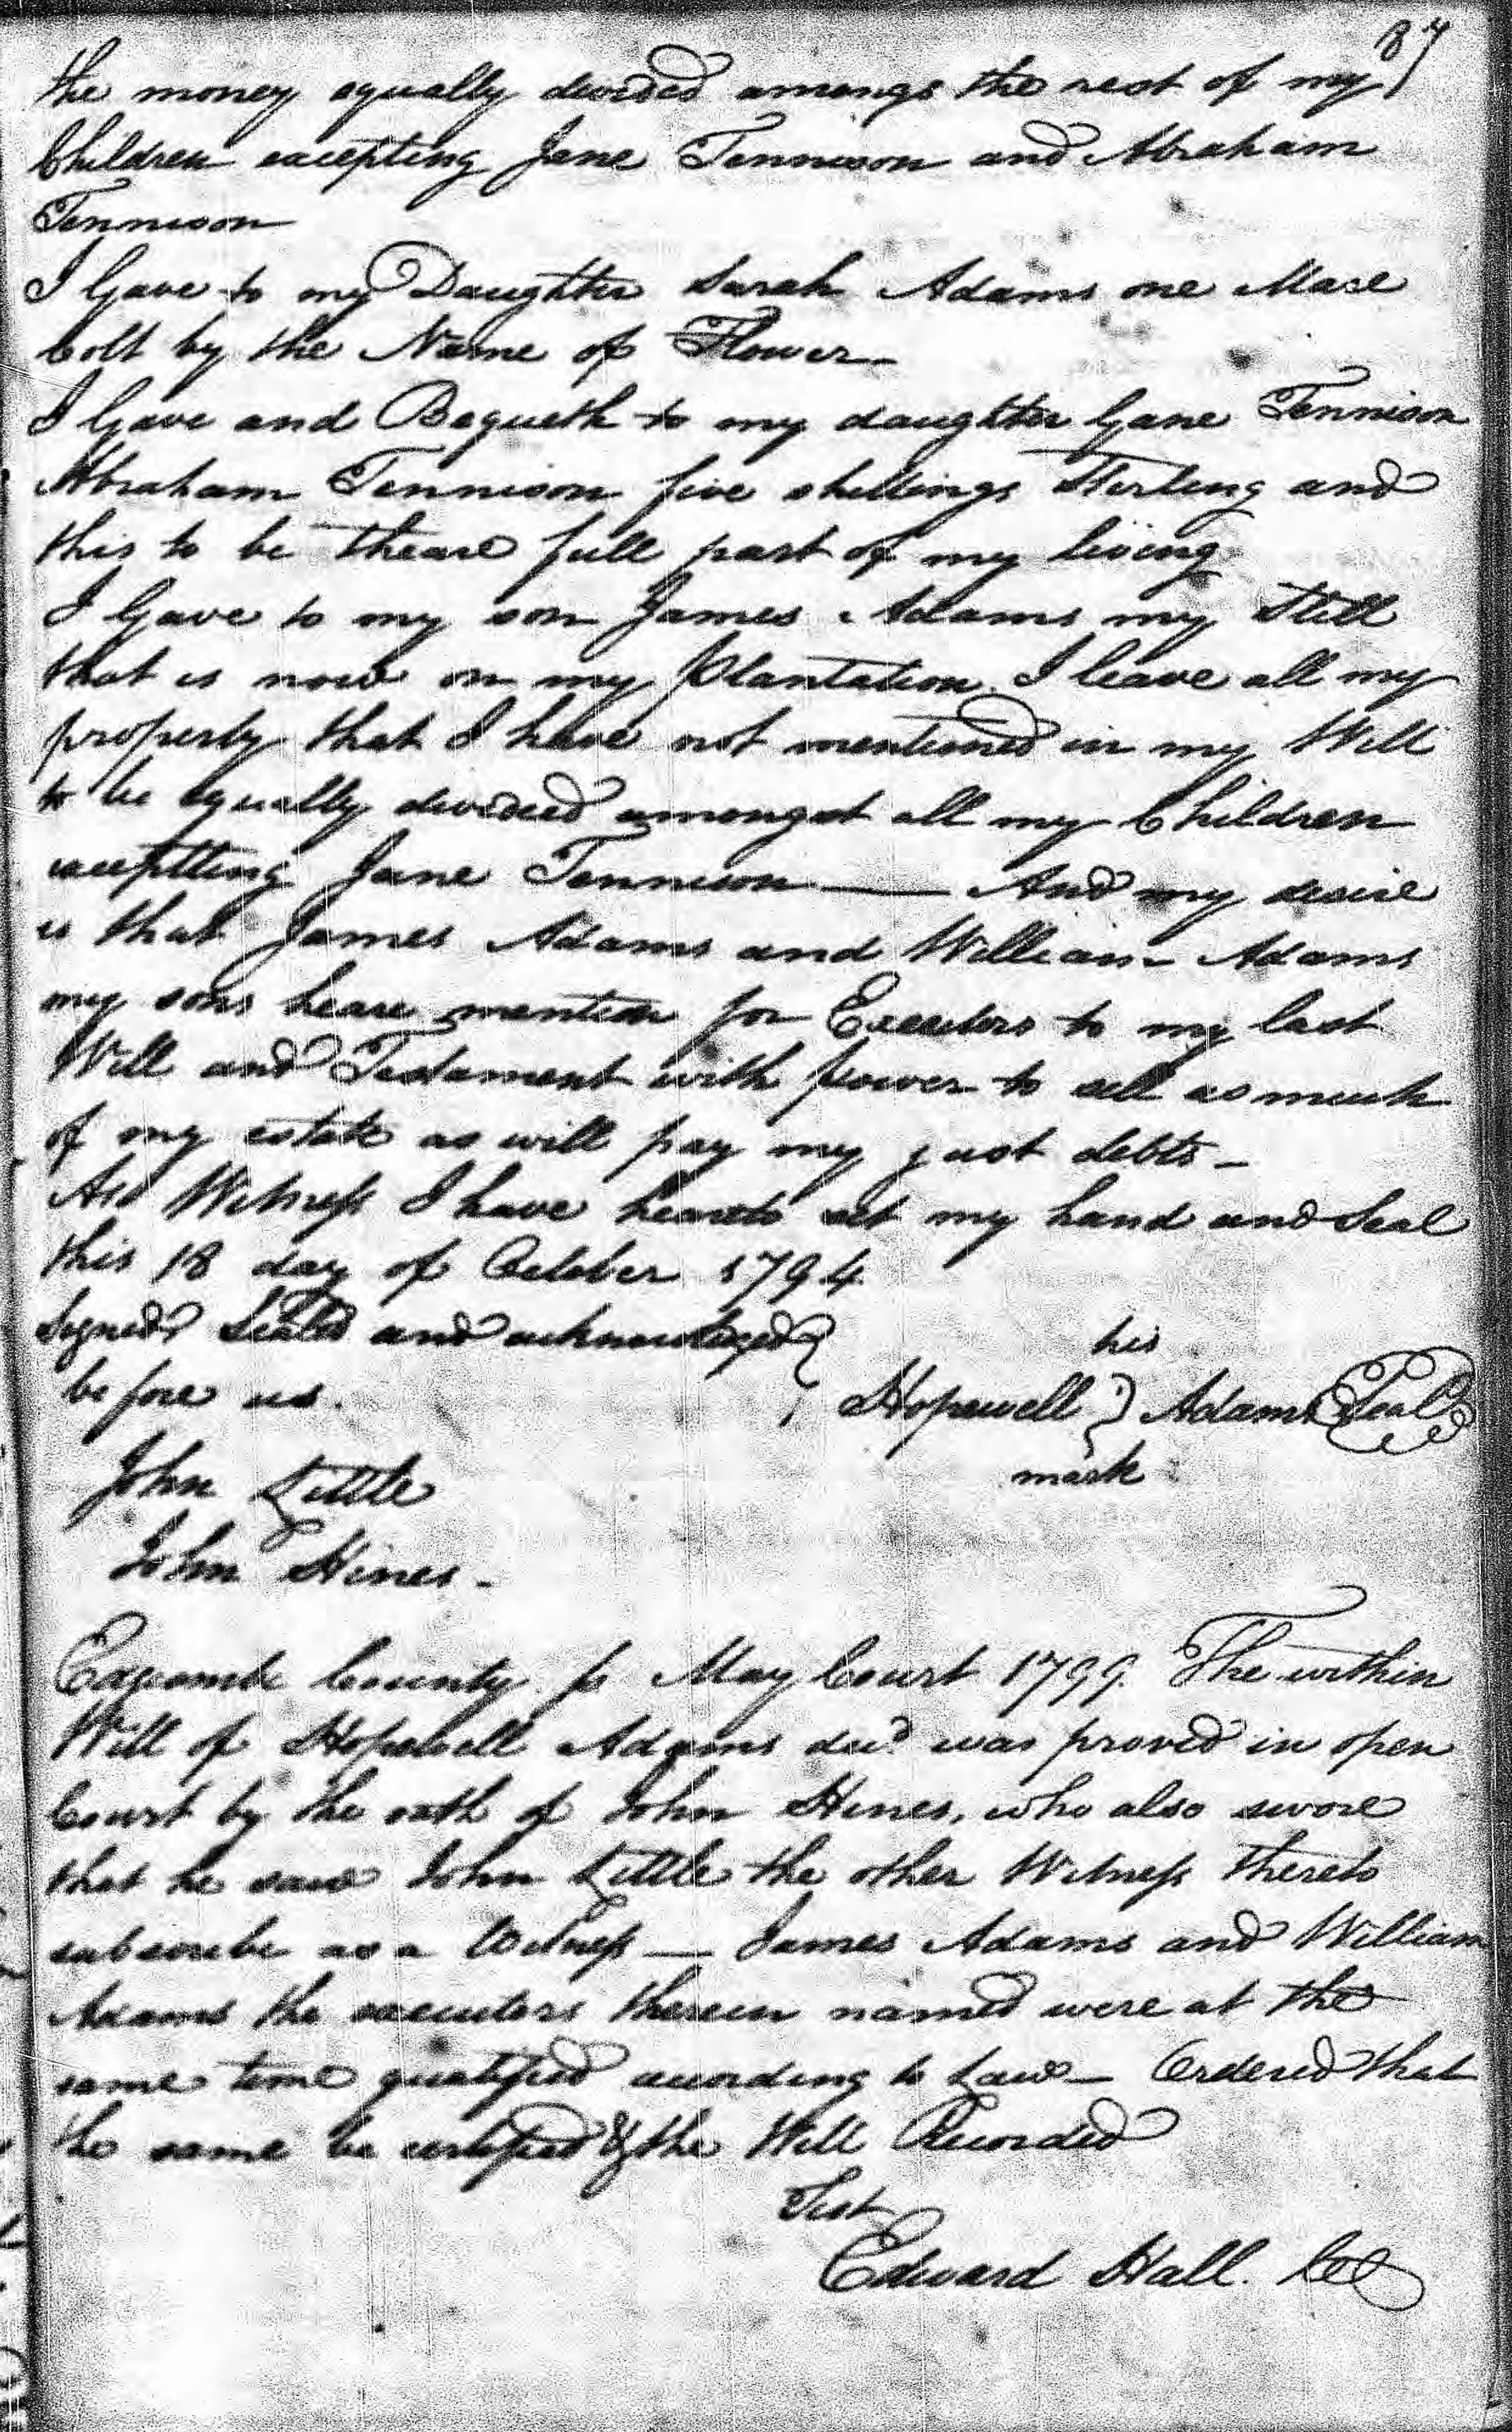 87
the money equally devided amongs the rest of my
Children excepting Jane Tennison and Abraham
Tennison
I Gave to my Daughter Sarah Adams one Mare
Colt by the Name of Flower
I Gave and Bequeth to my daughter Gane Tennison
Abraham Tennison five shillings Sterling and
this to be theare full part of my living
I Gave to my son James Adams my Still
that is now on my Plantation. I leave all my
property that I have not mentioned in my Will
to be equally devided amongst all my Children
exceptting Jane Tennison — And my desire
is that James Adams and William Adams
my sons heare mention for Executors to my last
Will and Testament with power to sell as much
of my estate as will pay my just debts —
As Witness I have hearto set my hand and Seal
this 18 day of October 1794
Signed Seald and acknowledged
before us.
his
Hopewell } Adams Seal
mark
John Little
John Hines.
Edgcombe County ss May Court 1799. The within
Will of Hopewell Adams decd. was proved in open
Court by the oath of John Hines, who also swore
that he saw John Little the other Witness thereto
subscribe as a Witness — James Adams and William
Adams the executors therein named were at the
same time qualified according to Law — Ordered that
the same be certified & the Will Recorded
Test
Edward Hall. CC